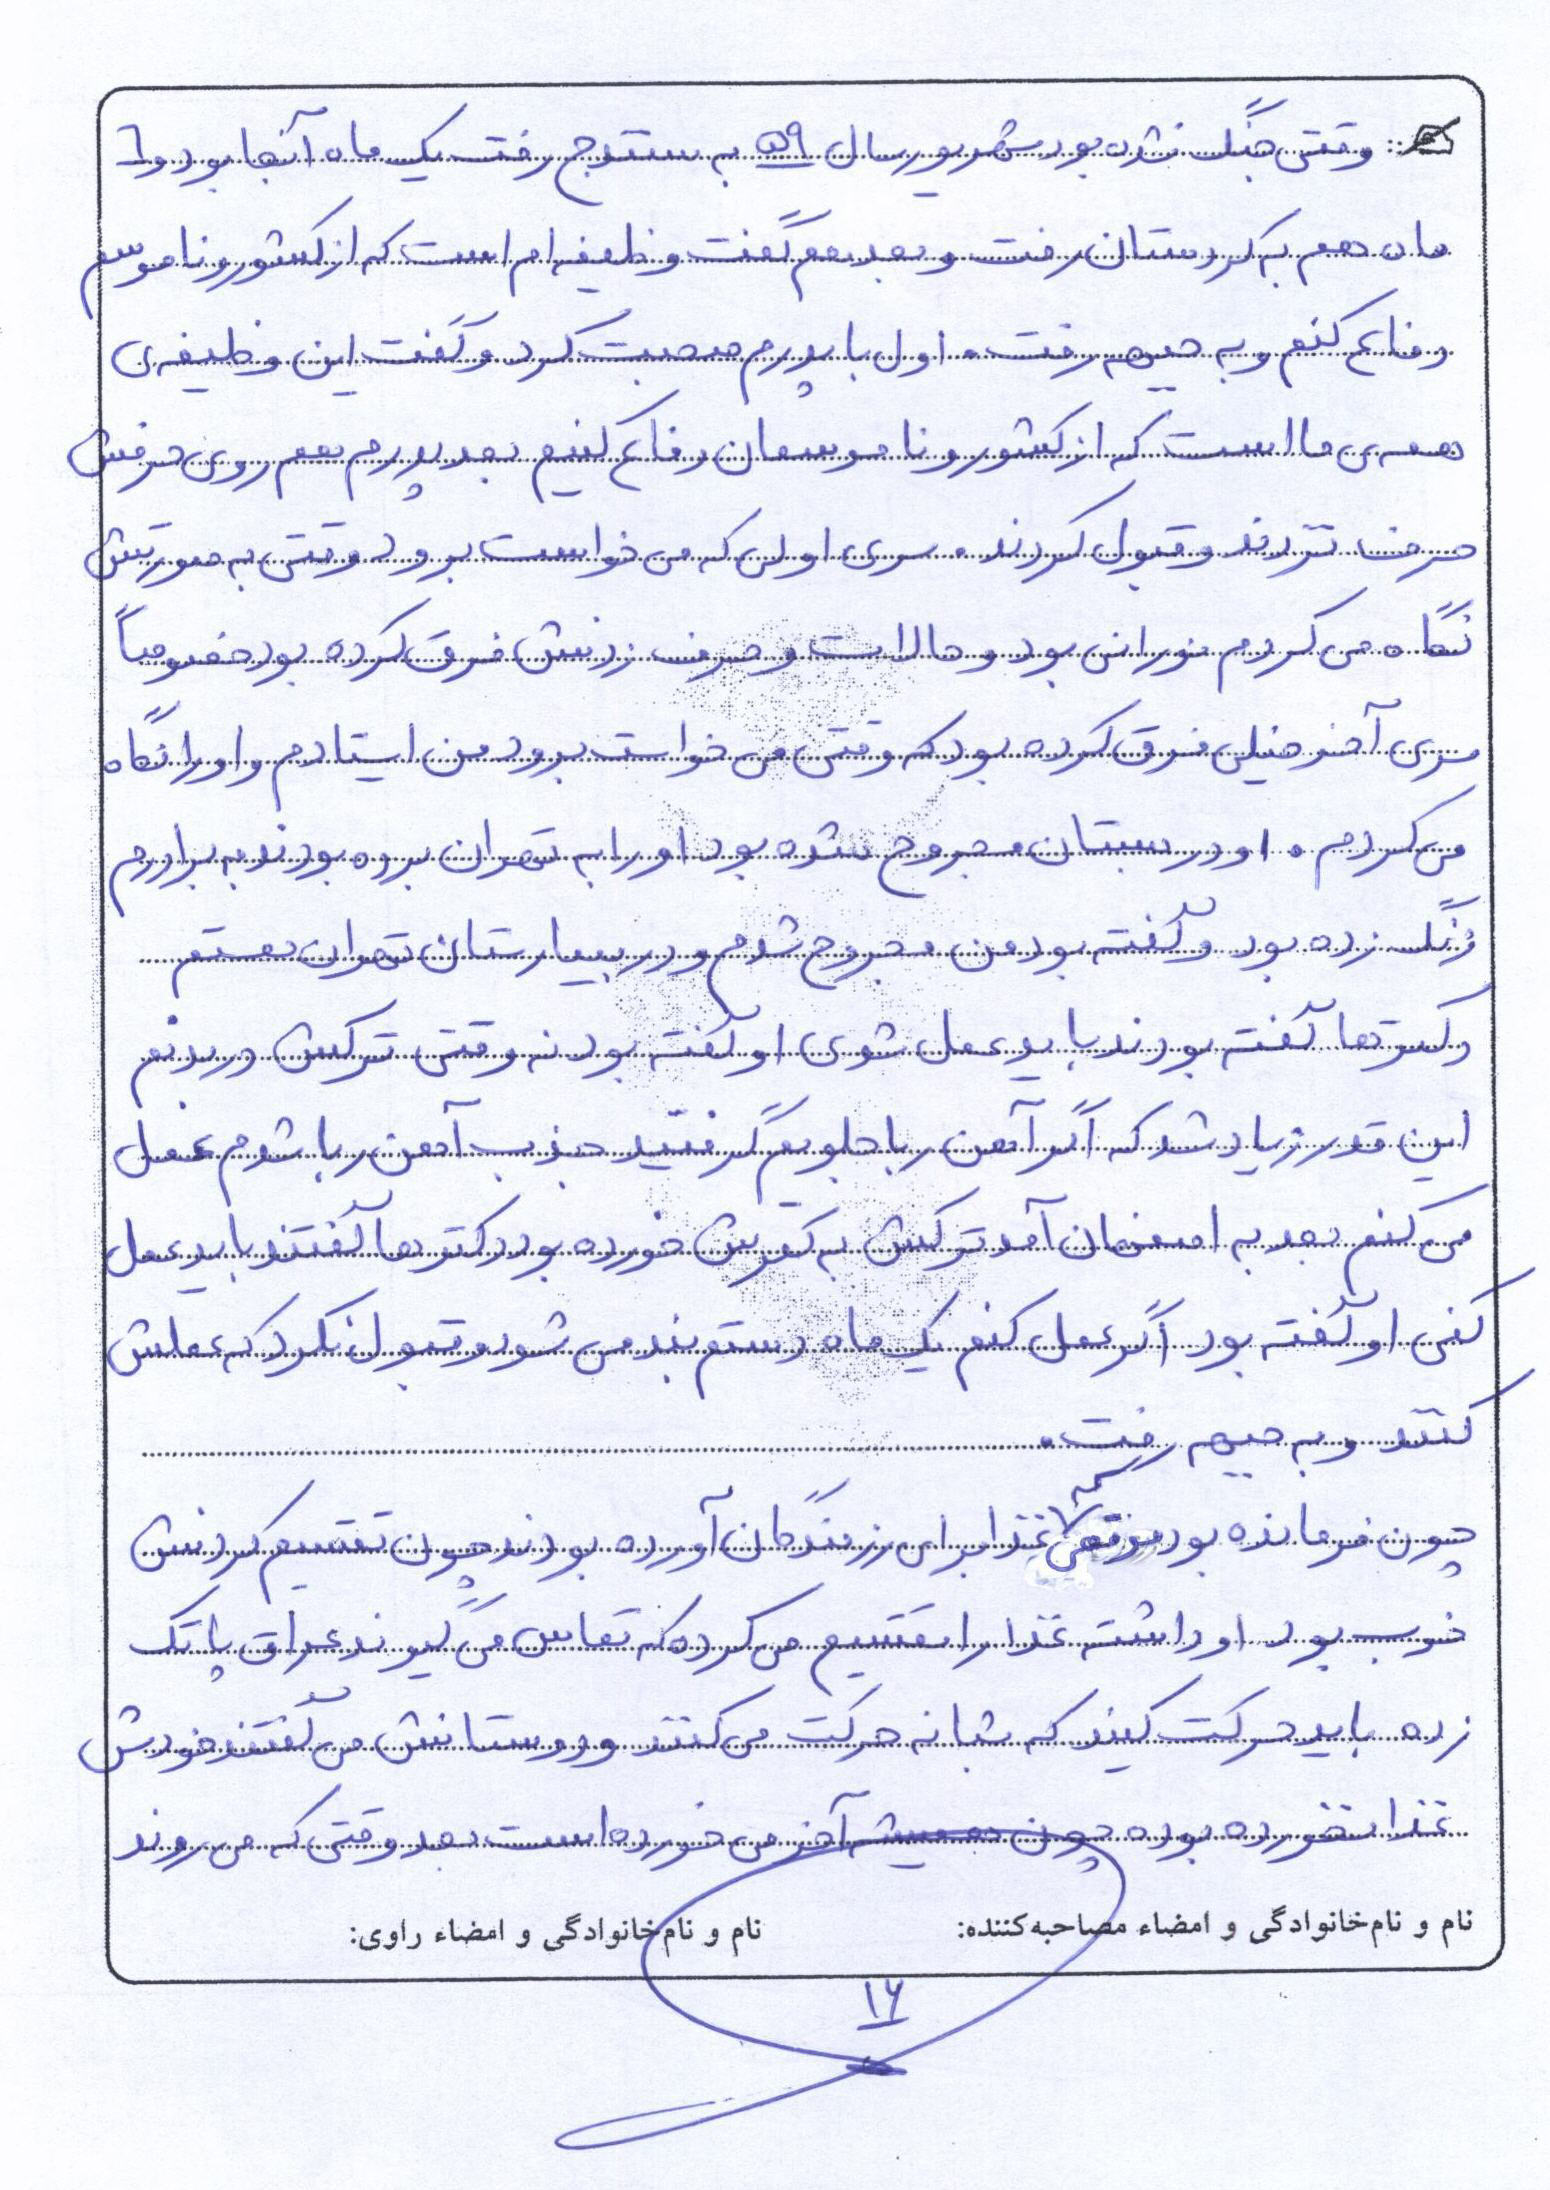 وقتی جنگ نشده بود شهریور سال ۵۹ به سنندج رفت یک ماه آنجا بود و ۶
ماه هم به کردستان رفت و بعد هم گفت وظیفه ام است که از کشور و ناموسم
دفاع کنم و به جبهه رفت. اول با پدرم صحبت کرد و گفت این وظیفه ی
همه ی ما است که از کشور و ناموسمان دفاع کنیم بعد پدرم هم روی حرفش
حرف نزدند و قبول کردند. سری اولی که می خواست برود وقتی به صورتش
نگاه می کردم نورانی بود و حالات و حرف زدنش فرق کرده بود خصوصاً
سری آخر خیلی فرق کرده بود که وقتی می خواست برود من ایستادم و او را نگاه
می کردم. او در بستان مجروح شده بود او را به تهران برده بودند به برادرم
زنگ زده بود و گفته بود من مجروح شدم و در بیمارستان تهران هستم
دکترها گفته بودند باید عمل شوی او گفته بود نه وقتی ترکش در بدنم
این قدر زیاد شد که اگر آهن ربا جلویم گرفتید جذب آهن ربا شدم عمل
می کنم بعد به اصفهان آمد ترکش به کتفش خورده بود دکترها گفتند باید عمل
کنی او گفته بود اگر عمل کنم یک ماه دستم بند می شود و قبول نکرد که عملش
کنند و به جبهه رفت.
چون فرمانده بود موقعی که غذا برای رزمندگان آورده بودند چون تقسیم کردنش
خوب بود او داشته غذا را تقسیم می کرده که تماس می گیرند عراق پاتک
زده باید حرکت کنید که شبانه حرکت می کنند و دوستانش می گفتند خودش
غذا نخورده بوده چون همیشه آخر می خورده است بعد وقتی که می روند
نام و نام‌خانوادگی و امضاء مصاحبه‌کننده:
نام و نام‌خانوادگی و امضاء راوی:
۱۶